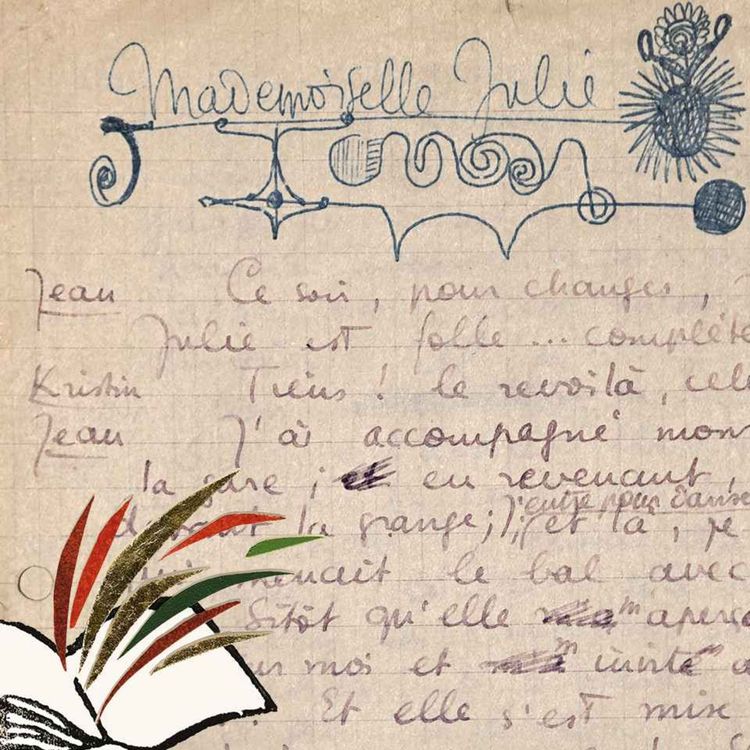 Mademoiselle Julie
Jean Ce soir, pour changer,
Julie est folle ... complète
Kristin Tiens ! le revoilà,
Jean J'ai accompagné mon
la gare ; en revenant,
devant la grange ; j'entre pour danse
; et là, je
menait le bal avec
Sitôt qu'elle m'aperç
sur moi et m'invite
Et elle s'est mise